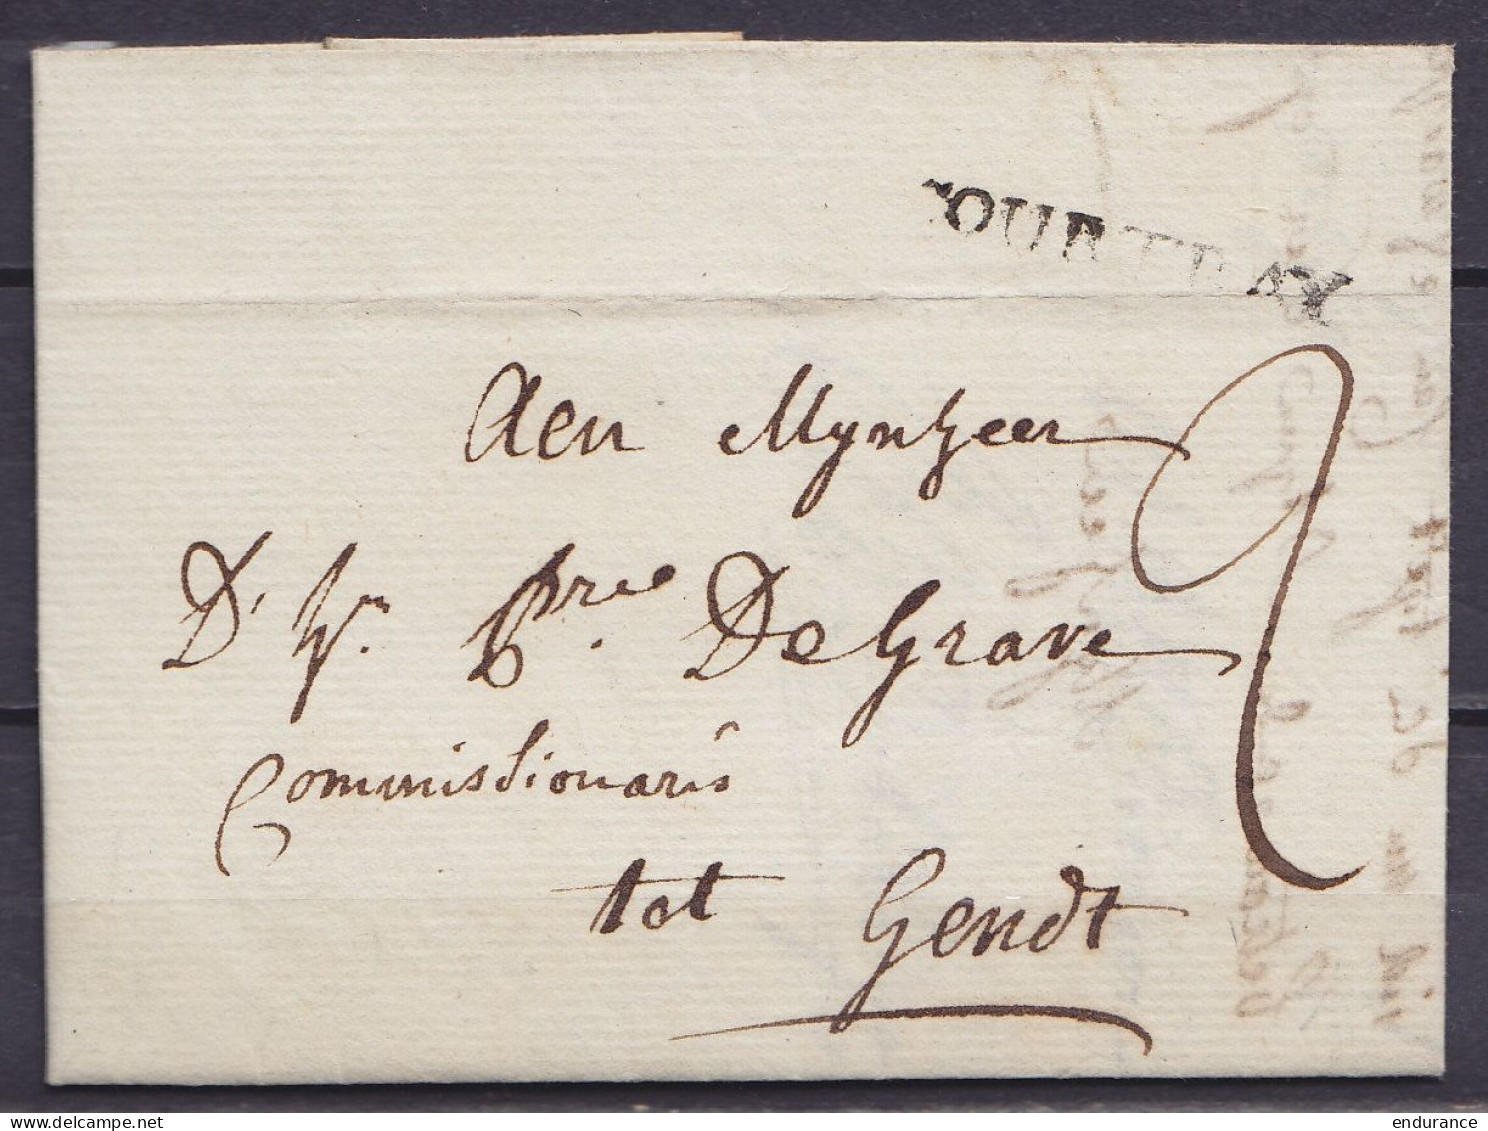 COURTRAY
Aen Mynheer
D' Hr. DeGrave
Commissionaris
tot Gendt
2
www.delcampe.net
endurance